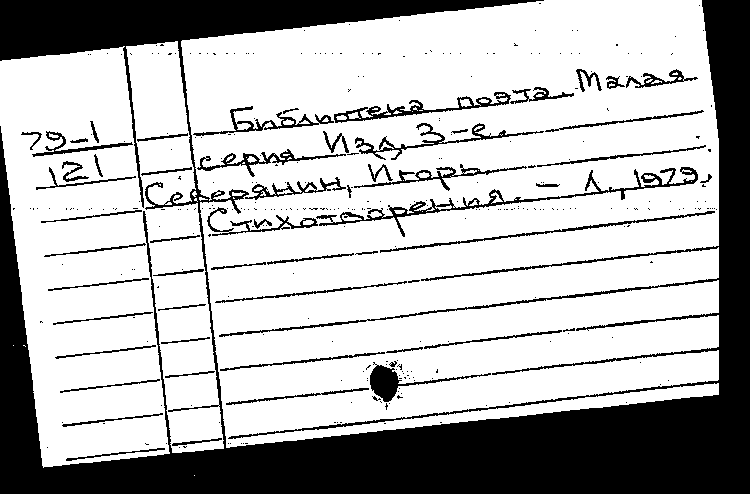 Библиотека поэта. Малая
79-1 серия. Изд. 3-е.
121
Северянин, Игорь.
Стихотворения. – Л., 1979.